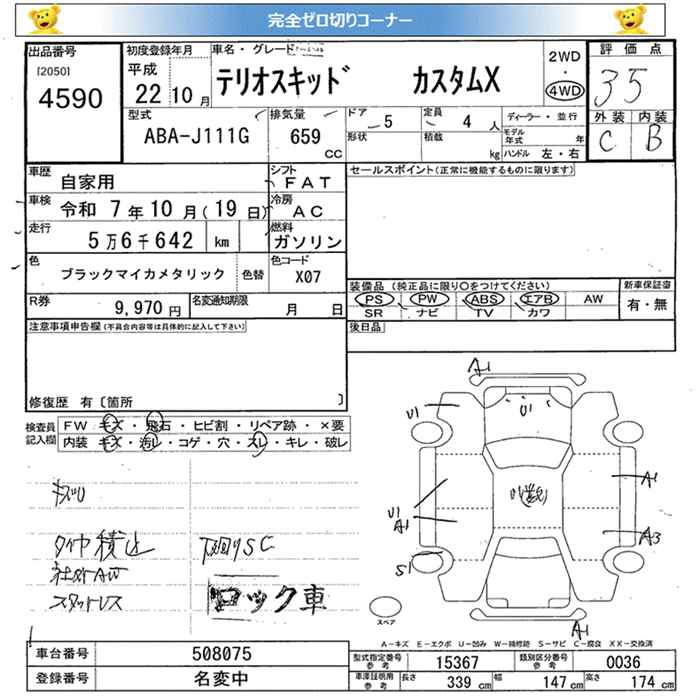 完全ゼロ切りコーナー
出品番号
[2050]
4590
初度登録年月
平成
22 10 月
車名・グレード
テリオスキッド カスタムX
2WD
・
4WD
評価点
35
外装 内装
C B
型式
ABA-J111G
排気量
659
CC
ドア
5
形状
定員
4 人
積載
kg
ディーラー・並行
モデル年式 年
ハンドル 左・右
車歴
自家用
シフト
FAT
車検
令和 7年10月(19日)
冷房
AC
走行
5万6千642 km
燃料
ガソリン
色
ブラックマイカメタリック
色替
色コード
X07
R券
9,970 円
名変通知期限
月 日
セールスポイント(正常に機能するものに限ります)
装備品(純正品に限り○をつけてください)
PS PW ABS エアB AW
SR ナビ TV カワ
新車保証書
有・無
後日品
注意事項申告欄(不具合内容等は具体的に記入して下さい)
修復歴 有〔箇所 〕
検査員記入欄
FW キズ・飛石・ヒビ割・リペア跡・×要
内装 キズ・汚レ・コゲ・穴・スレ・キレ・破レ
タイヤ積込
社外AW
スタッドレス
下廻りSC
ロック車
A1
U1
U1
A1
U1
A1
A3
S1
A1
スペア
A-キズ E-エクボ U-凹み W-補修跡 S-サビ C-腐食 XX-交換済
車台番号
508075
登録番号
名変中
型式指定番号
参考
15367
類別区分番号
参考
0036
車庫証明用
参考
長さ 339 cm 幅 147 cm 高さ 174 cm